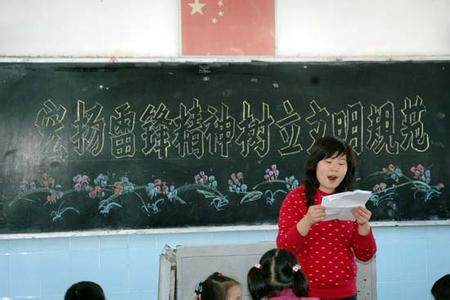 宏扬雷锋精神树立文明规范